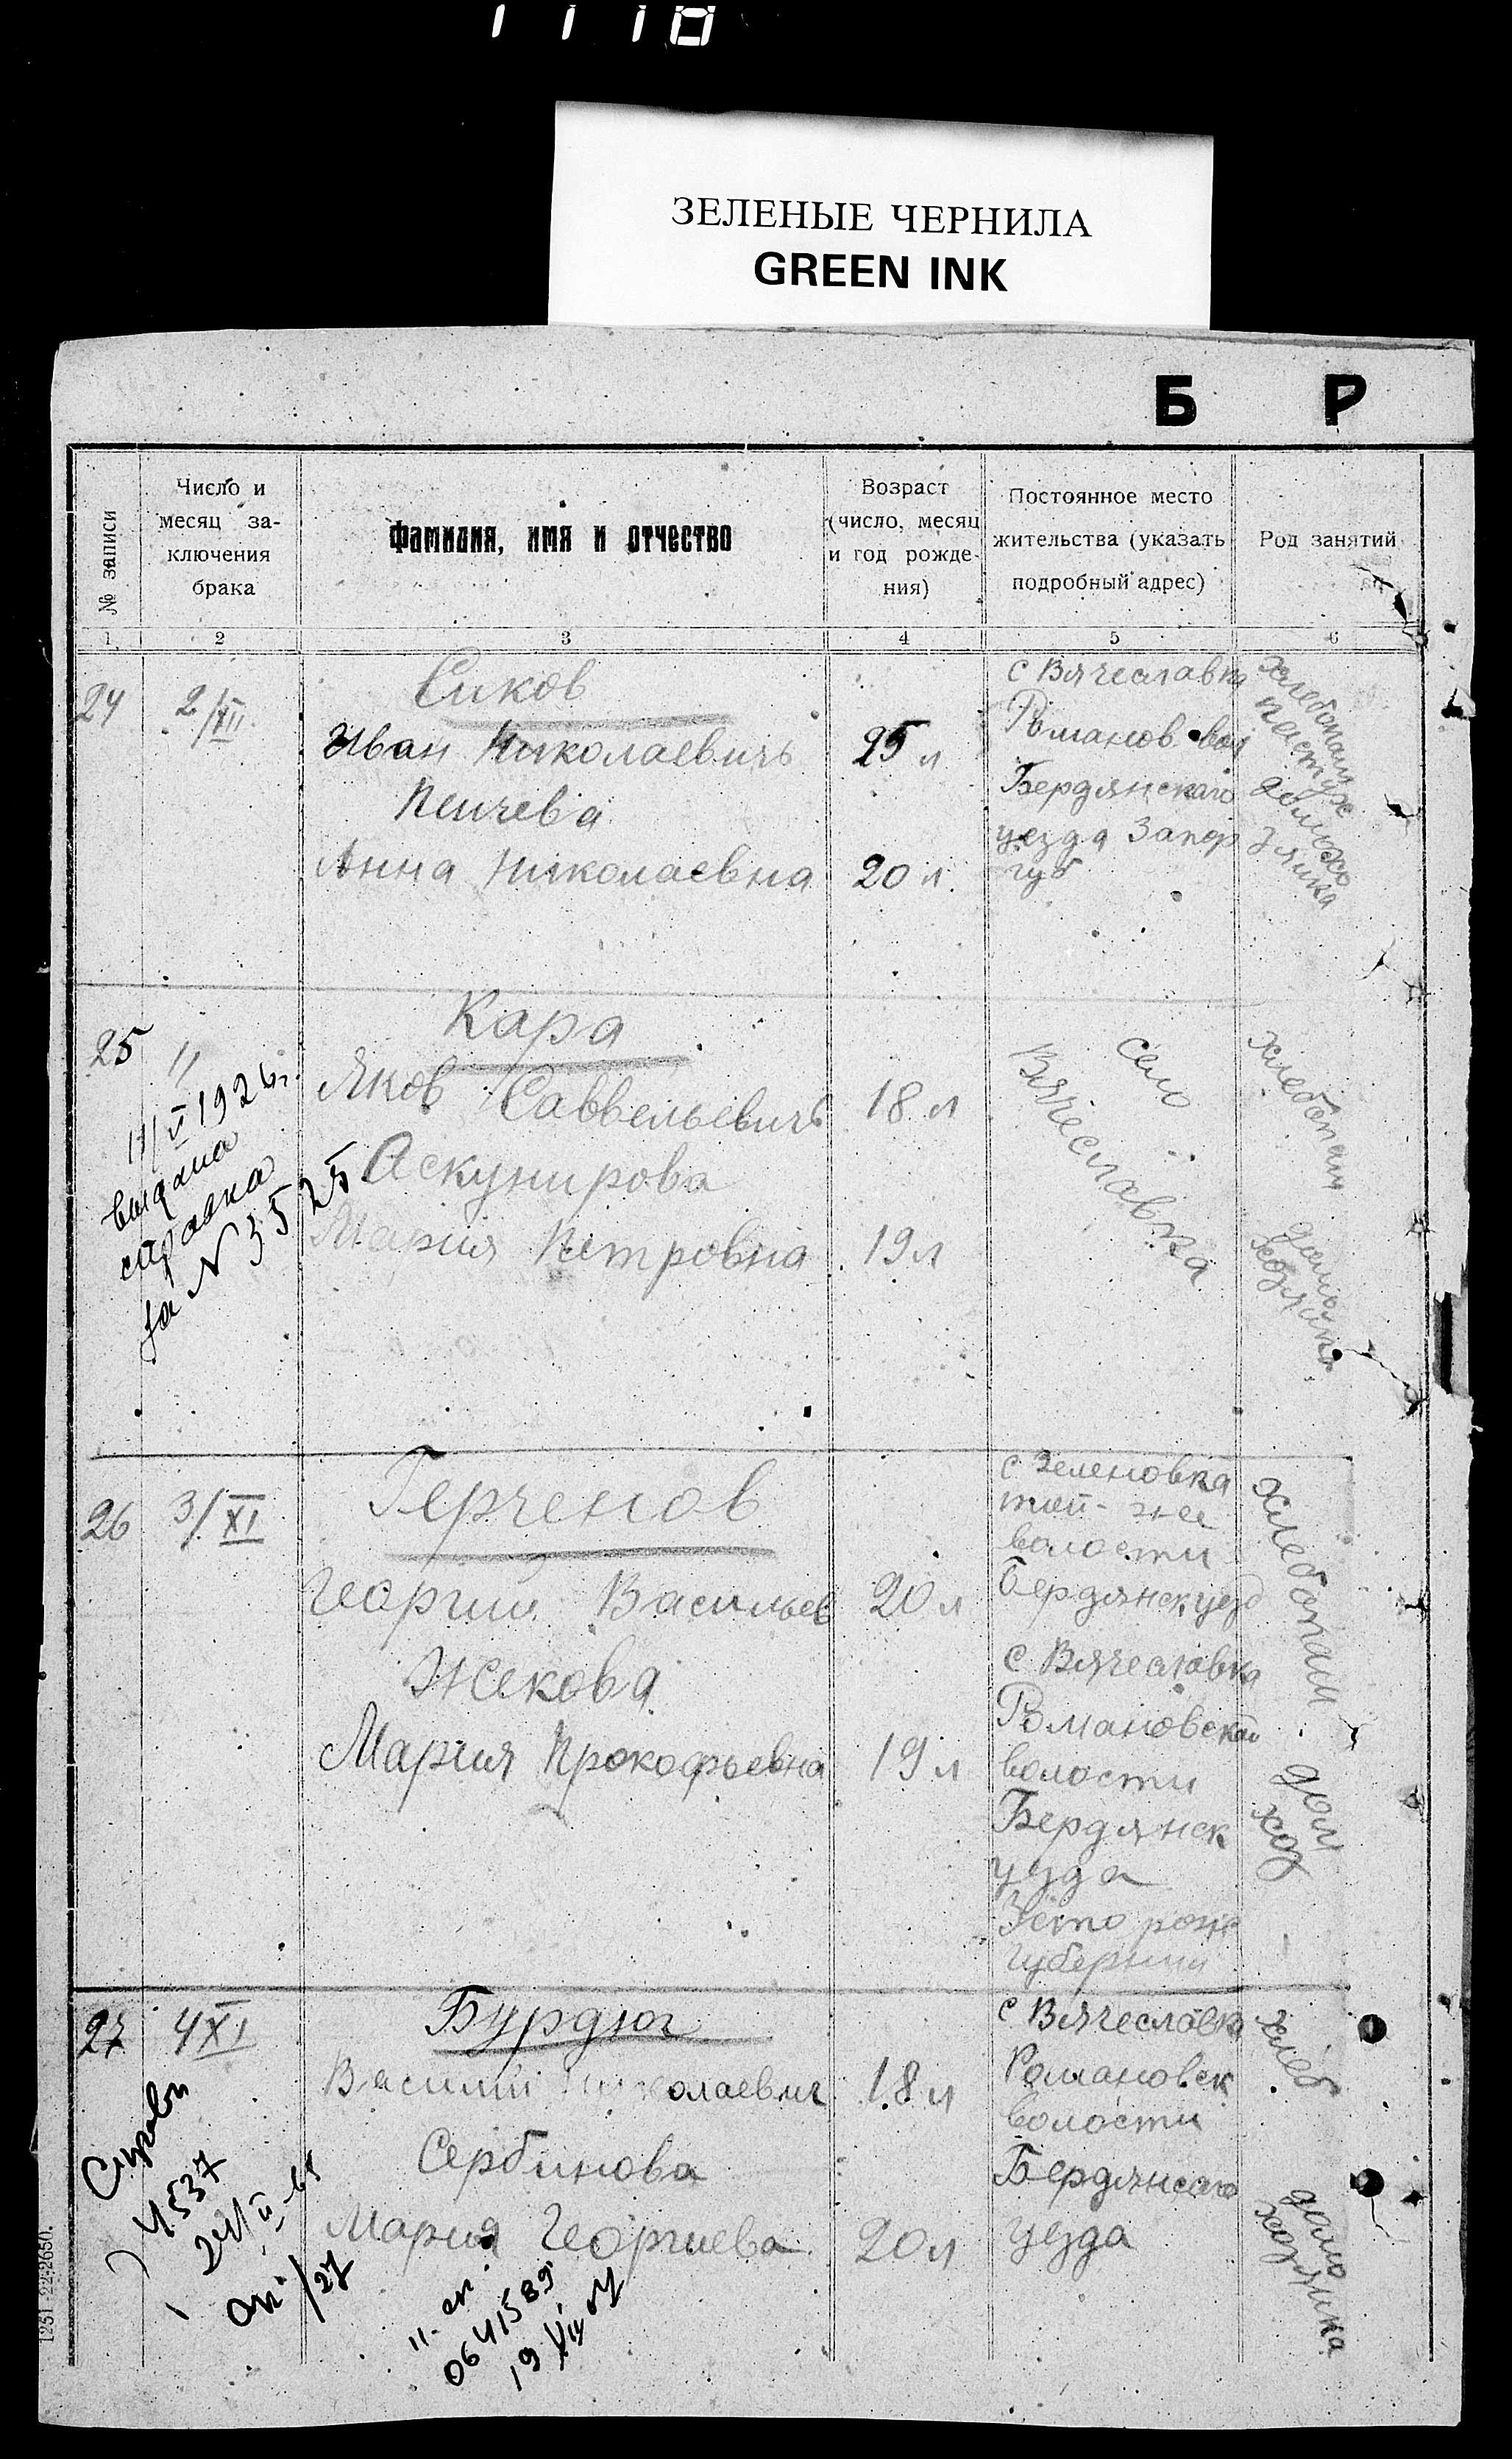 1118
ЗЕЛЕНЫЕ ЧЕРНИЛА
GREEN INK
Б Р
№ записи
Число и
месяц за-
ключения
брака
Фамилия, имя и отчество
Возраст
(число, месяц
и год рожде-
ния)
Постоянное место
жительства (указать
подробный адрес)
Род занятий
1 2 3 4 5 6
24
2/XII
Сиков
Иван Николаевичъ
25 л
Пейчева
Анна Николаевна
20 л.
с Вячеславка
Романов вол
Бердянскаго
уезда Запор
губ
хлебопаш
пастух
домохо
зяйка
25
"
Кара
Яков Саввельевичъ
18 л
Аскунирова
Мария Петровна
19 л
село
Вячеславка
хлебопаш
17/V 1926 г.
выдана
справка
за N 3525
26
3/XI
Герченов
Георгий Васильев
20 л
Жекова
Мария Прокофьевна
19 л
с Зеленовка
той-же
волости
Бердянск уезд
с Вячеславка
Романовской
волости
Бердянск
уезда
губернии
хлебопаш
дом
хоз
27
4 XI
Бурдюг
Василий Николаевич
18 л
Сербинова
Мария Георгиева
20 л
с Вячеславка
Романовск
волости
Бердянсаго
уезда
хлеб
домо
хозяйка
Справ
4537
/27
0641589
1251 22-2650.